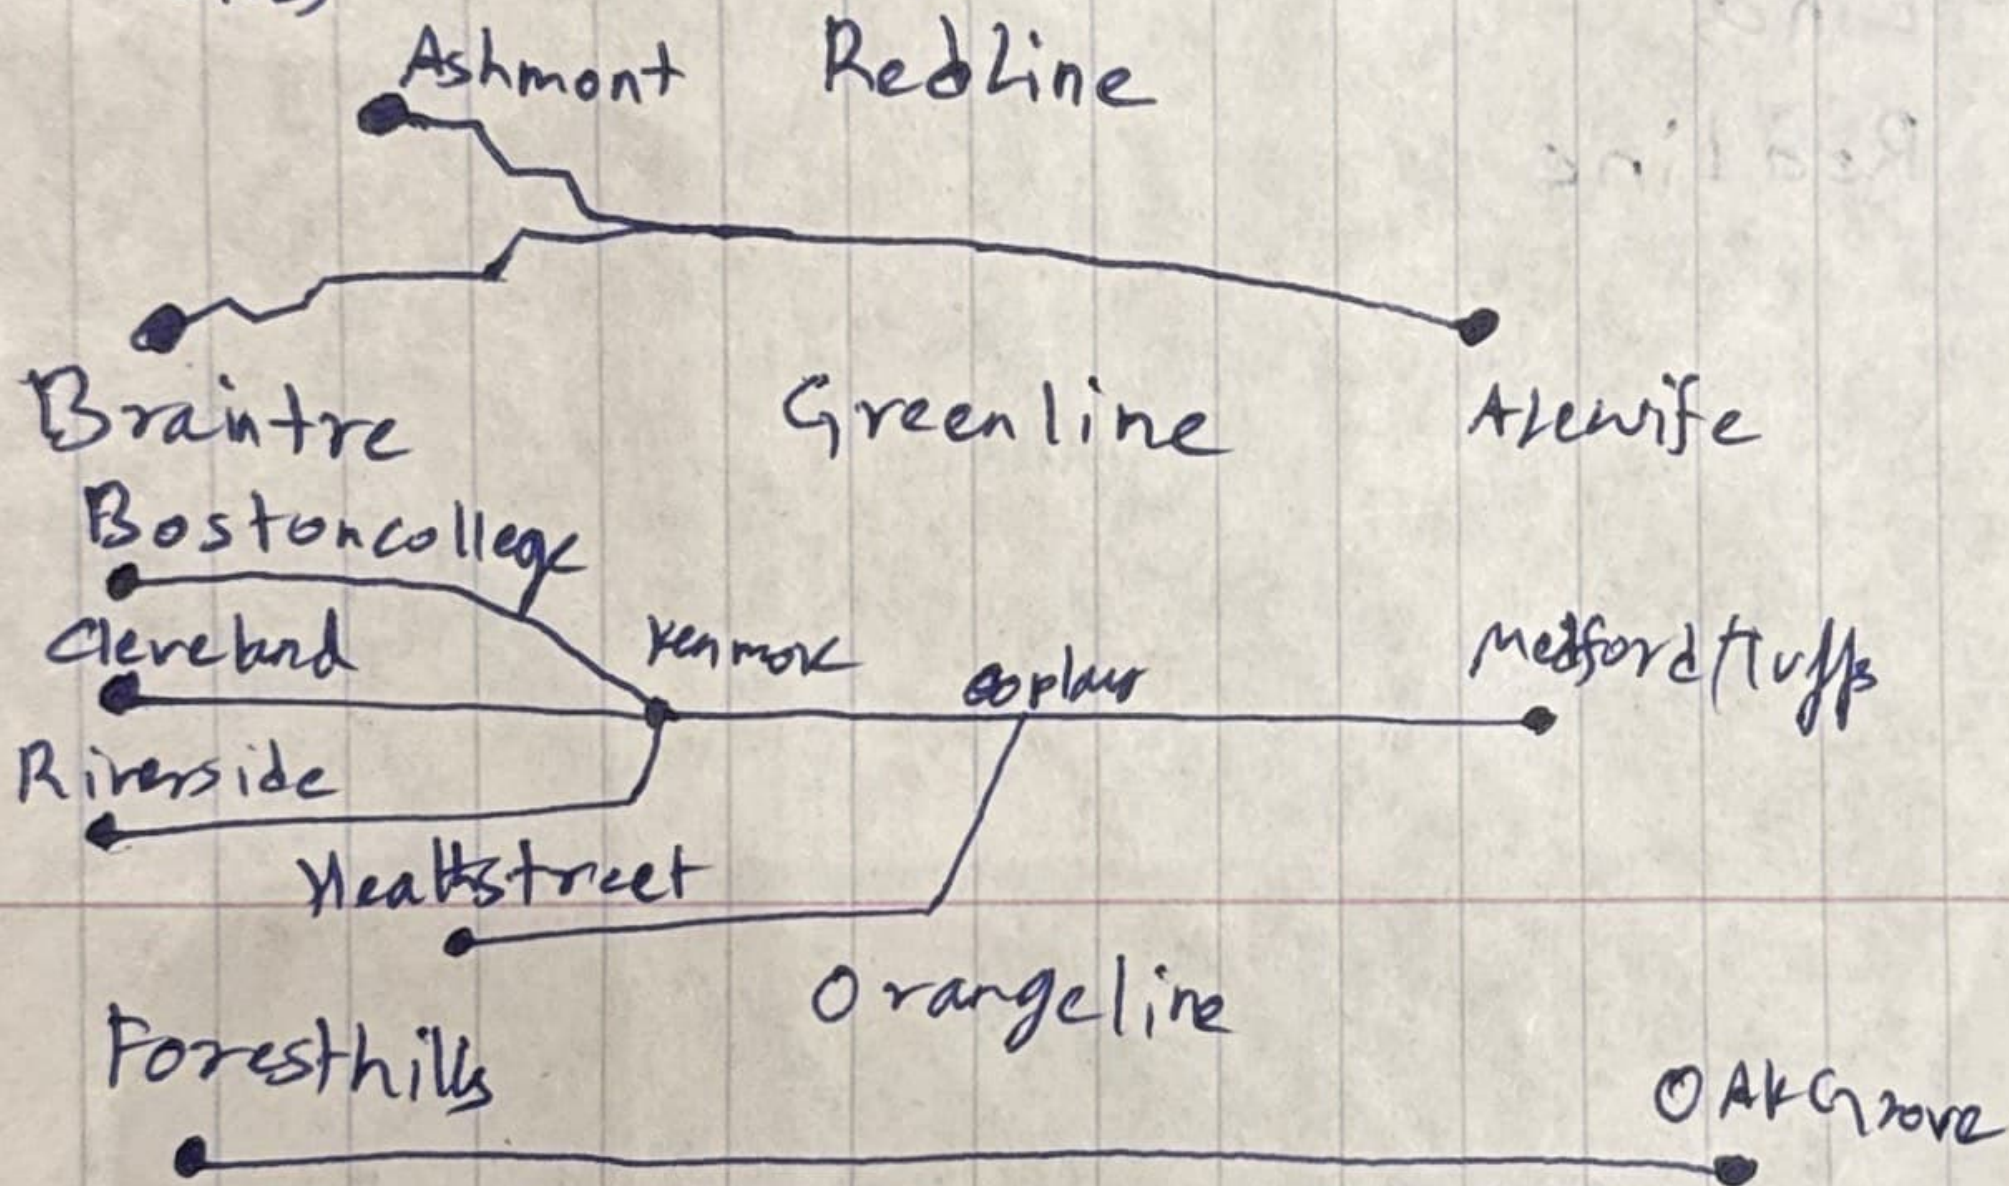 Ashmont RedLine
Braintre Greenline Alewife
Bostoncollege
Cleveland Kenmore Medford/tuffs
Riverside
Heathstreet
Orangeline
Foresthills
OAkGrove